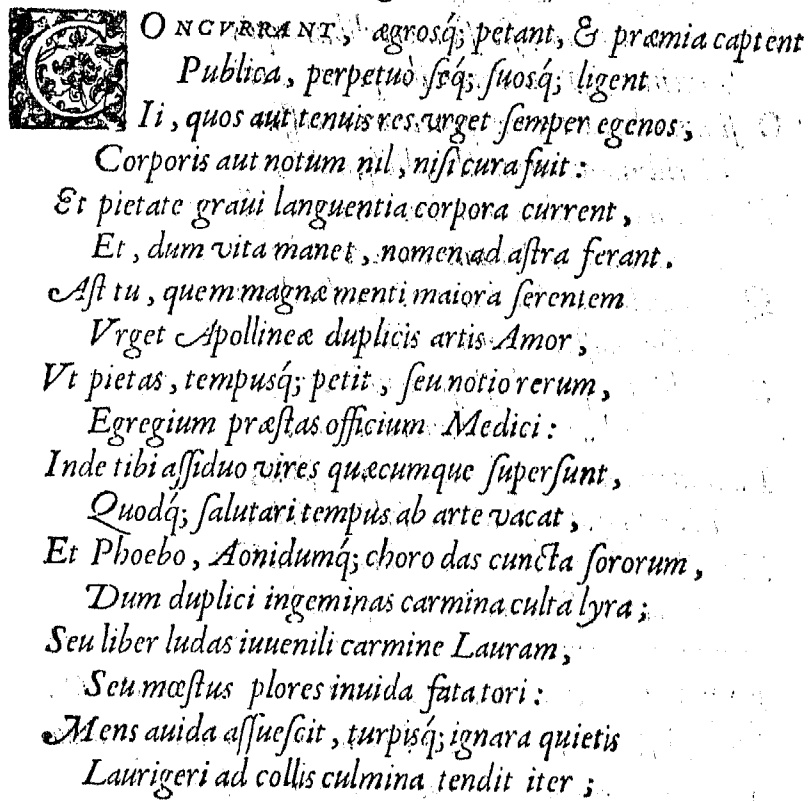 CONCVRRANT, ægrosq́; petant, & præmia captent
Publica, perpetuò ſeq́; ſuosq́; ligent
Ii, quos aut tenuis res vrget ſemper egenos,
Corporis aut notum nil, niſi cura fuit:
Et pietate graui languentia corpora current,
Et, dum vita manet, nomen ad aſtra ferant.
Aſt tu, quem magnæ menti maiora ſerentem
Vrget Apollineæ duplicis artis Amor,
Vt pietas, tempusq́; petit, ſeu notio rerum,
Egregium præſtas officium Medici:
Inde tibi aſſiduo vires quæcumque ſuperſunt,
Quodq́; ſalutari tempus ab arte vacat,
Et Phoebo, Aonidumq́; choro das cuncta ſororum,
Dum duplici ingeminas carmina culta lyra;
Seu liber ludas iuuenili carmine Lauram,
Seu mœſtus plores inuida fata tori:
Mens auida aſſueſcit, turpisq́; ignara quietis
Laurigeri ad collis culmina tendit iter;